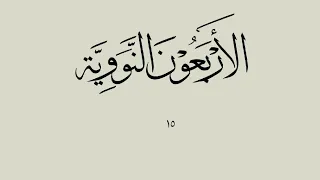 الأَرْبَعُوْنَ النَّوَوِيَّة
١٥